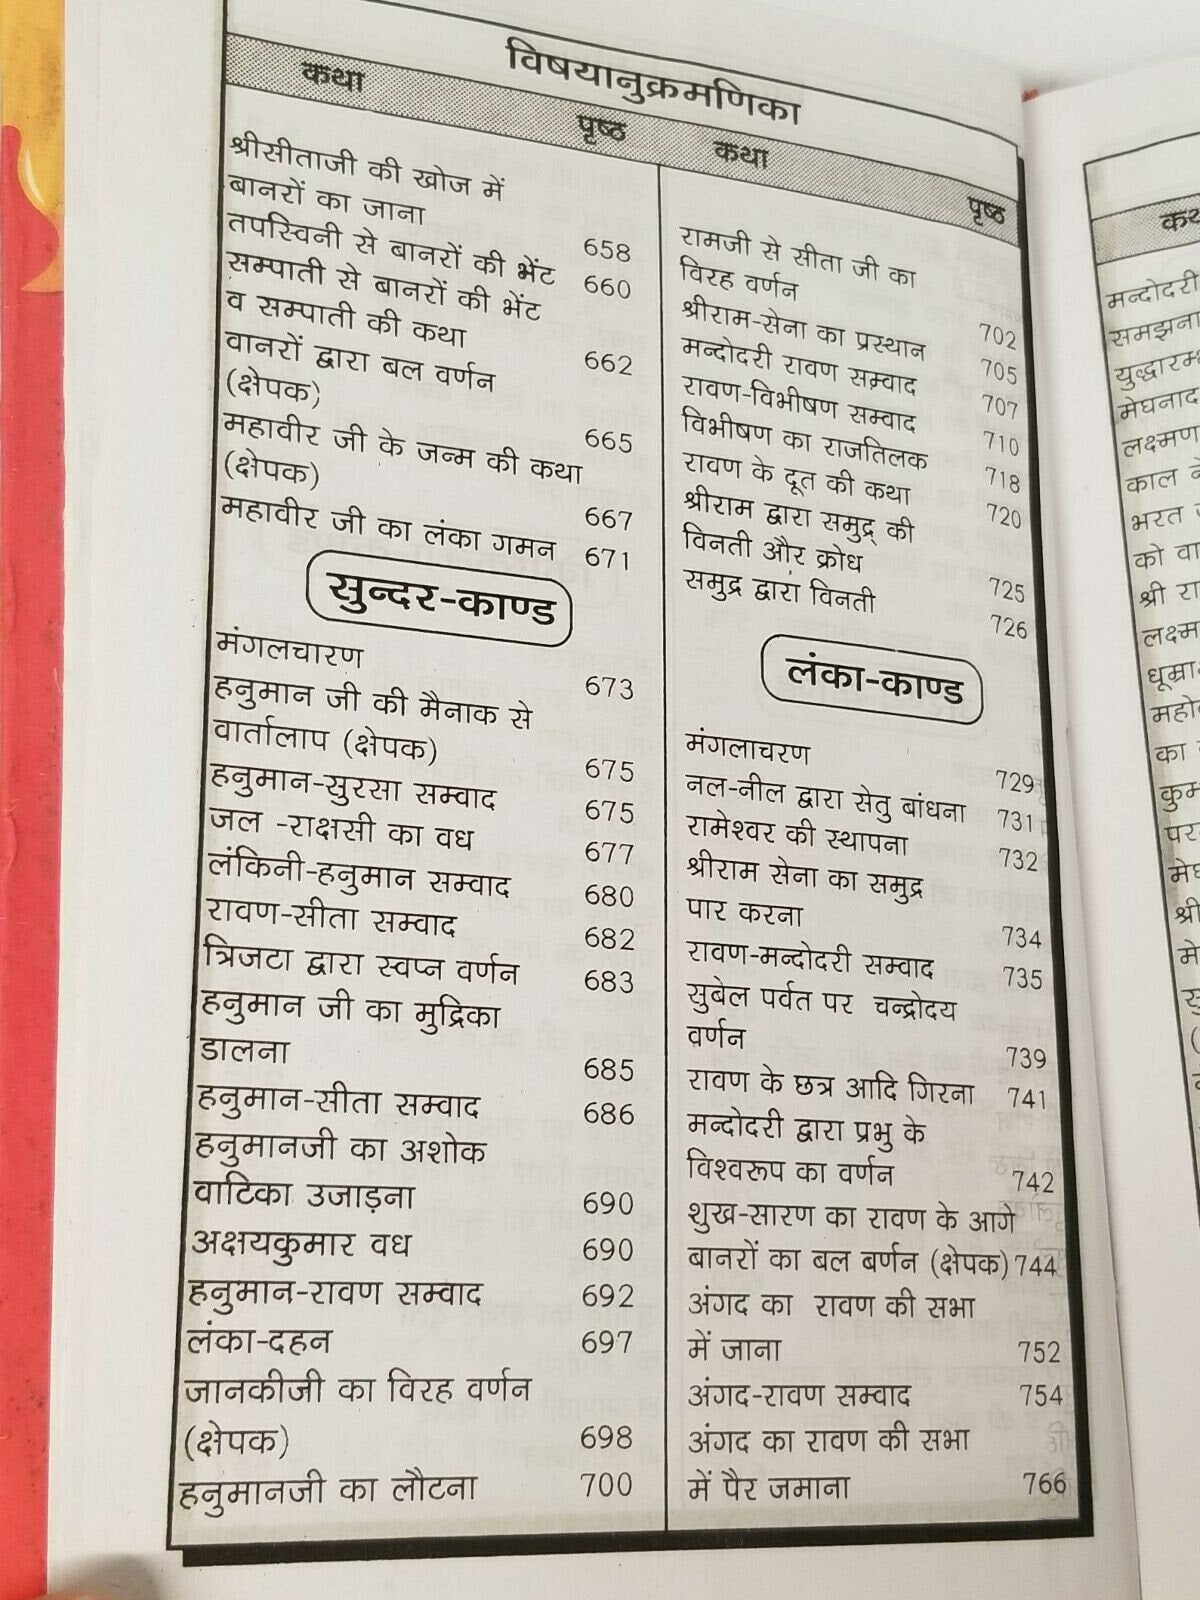 विषयानुक्रमणिका
कथा
पृष्ठ
श्रीसीताजी की खोज में
बानरों का जाना 658
तपस्विनी से बानरों की भेंट 660
सम्पाती से बानरों की भेंट
व सम्पाती की कथा 662
वानरों द्वारा बल वर्णन
(क्षेपक) 665
महावीर जी के जन्म की कथा
(क्षेपक) 667
महावीर जी का लंका गमन 671
सुन्दर-काण्ड
मंगलचारण 673
हनुमान जी की मैनाक से
वार्तालाप (क्षेपक) 675
हनुमान-सुरसा सम्वाद 675
जल -राक्षसी का वध 677
लंकिनी-हनुमान सम्वाद 680
रावण-सीता सम्वाद 682
त्रिजटा द्वारा स्वप्न वर्णन 683
हनुमान जी का मुद्रिका
डालना 685
हनुमान-सीता सम्वाद 686
हनुमानजी का अशोक
वाटिका उजाड़ना 690
अक्षयकुमार वध 690
हनुमान-रावण सम्वाद 692
लंका-दहन 697
जानकीजी का विरह वर्णन
(क्षेपक) 698
हनुमानजी का लौटना 700
कथा
पृष्ठ
रामजी से सीता जी का
विरह वर्णन 702
श्रीराम-सेना का प्रस्थान 705
मन्दोदरी रावण सम्वाद 707
रावण-विभीषण सम्वाद 710
विभीषण का राजतिलक 718
रावण के दूत की कथा 720
श्रीराम द्वारा समुद्र की
विनती और क्रोध 725
समुद्र द्वारा विनती 726
लंका-काण्ड
मंगलाचरण 729
नल-नील द्वारा सेतु बांधना 731
रामेश्वर की स्थापना 732
श्रीराम सेना का समुद्र
पार करना 734
रावण-मन्दोदरी सम्वाद 735
सुबेल पर्वत पर चन्द्रोदय
वर्णन 739
रावण के छत्र आदि गिरना 741
मन्दोदरी द्वारा प्रभु के
विश्वरूप का वर्णन 742
शुख-सारण का रावण के आगे
बानरों का बल बर्णन (क्षेपक) 744
अंगद का रावण की सभा
में जाना 752
अंगद-रावण सम्वाद 754
अंगद का रावण की सभा
में पैर जमाना 766
मन्दोदरी
समझना
मेघनाद
लक्ष्मण
काल
भरत
को वा
श्री रा
का